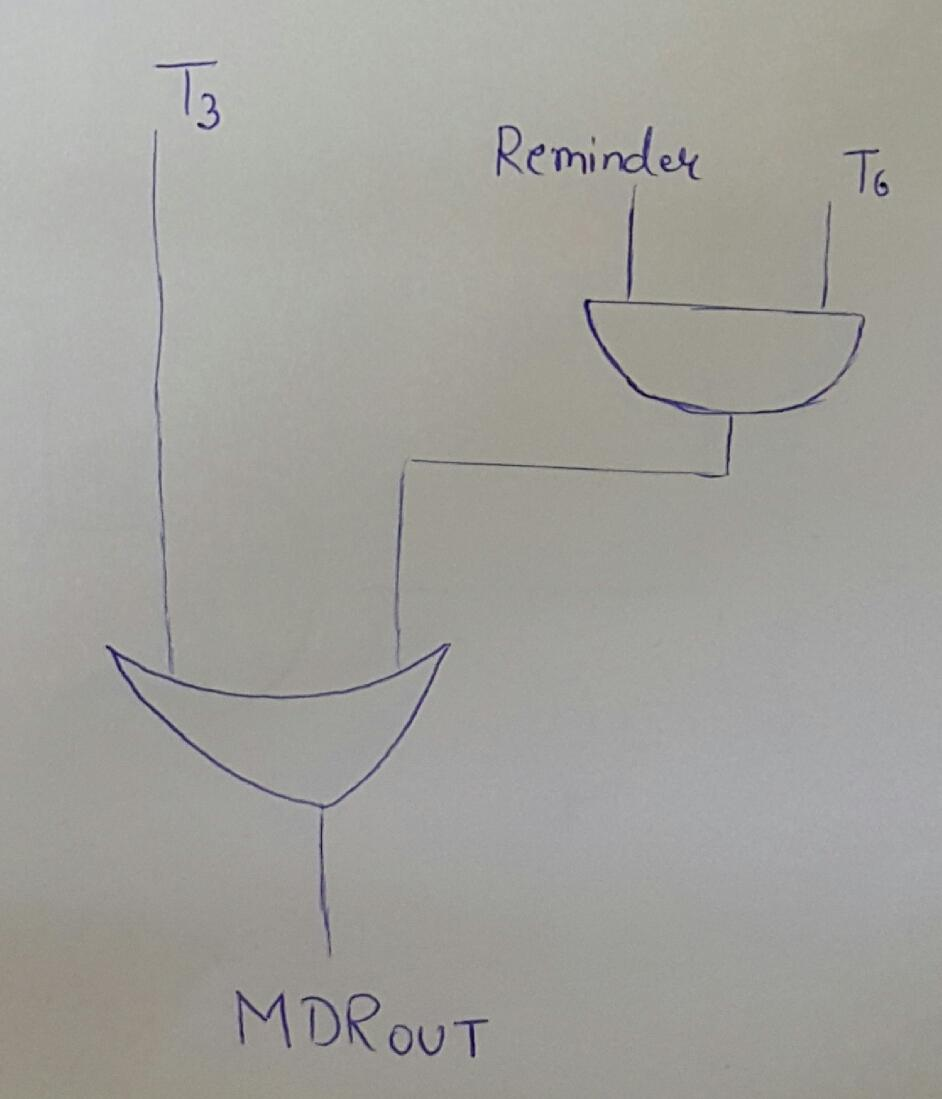 T3
Reminder
T6
MDROUT